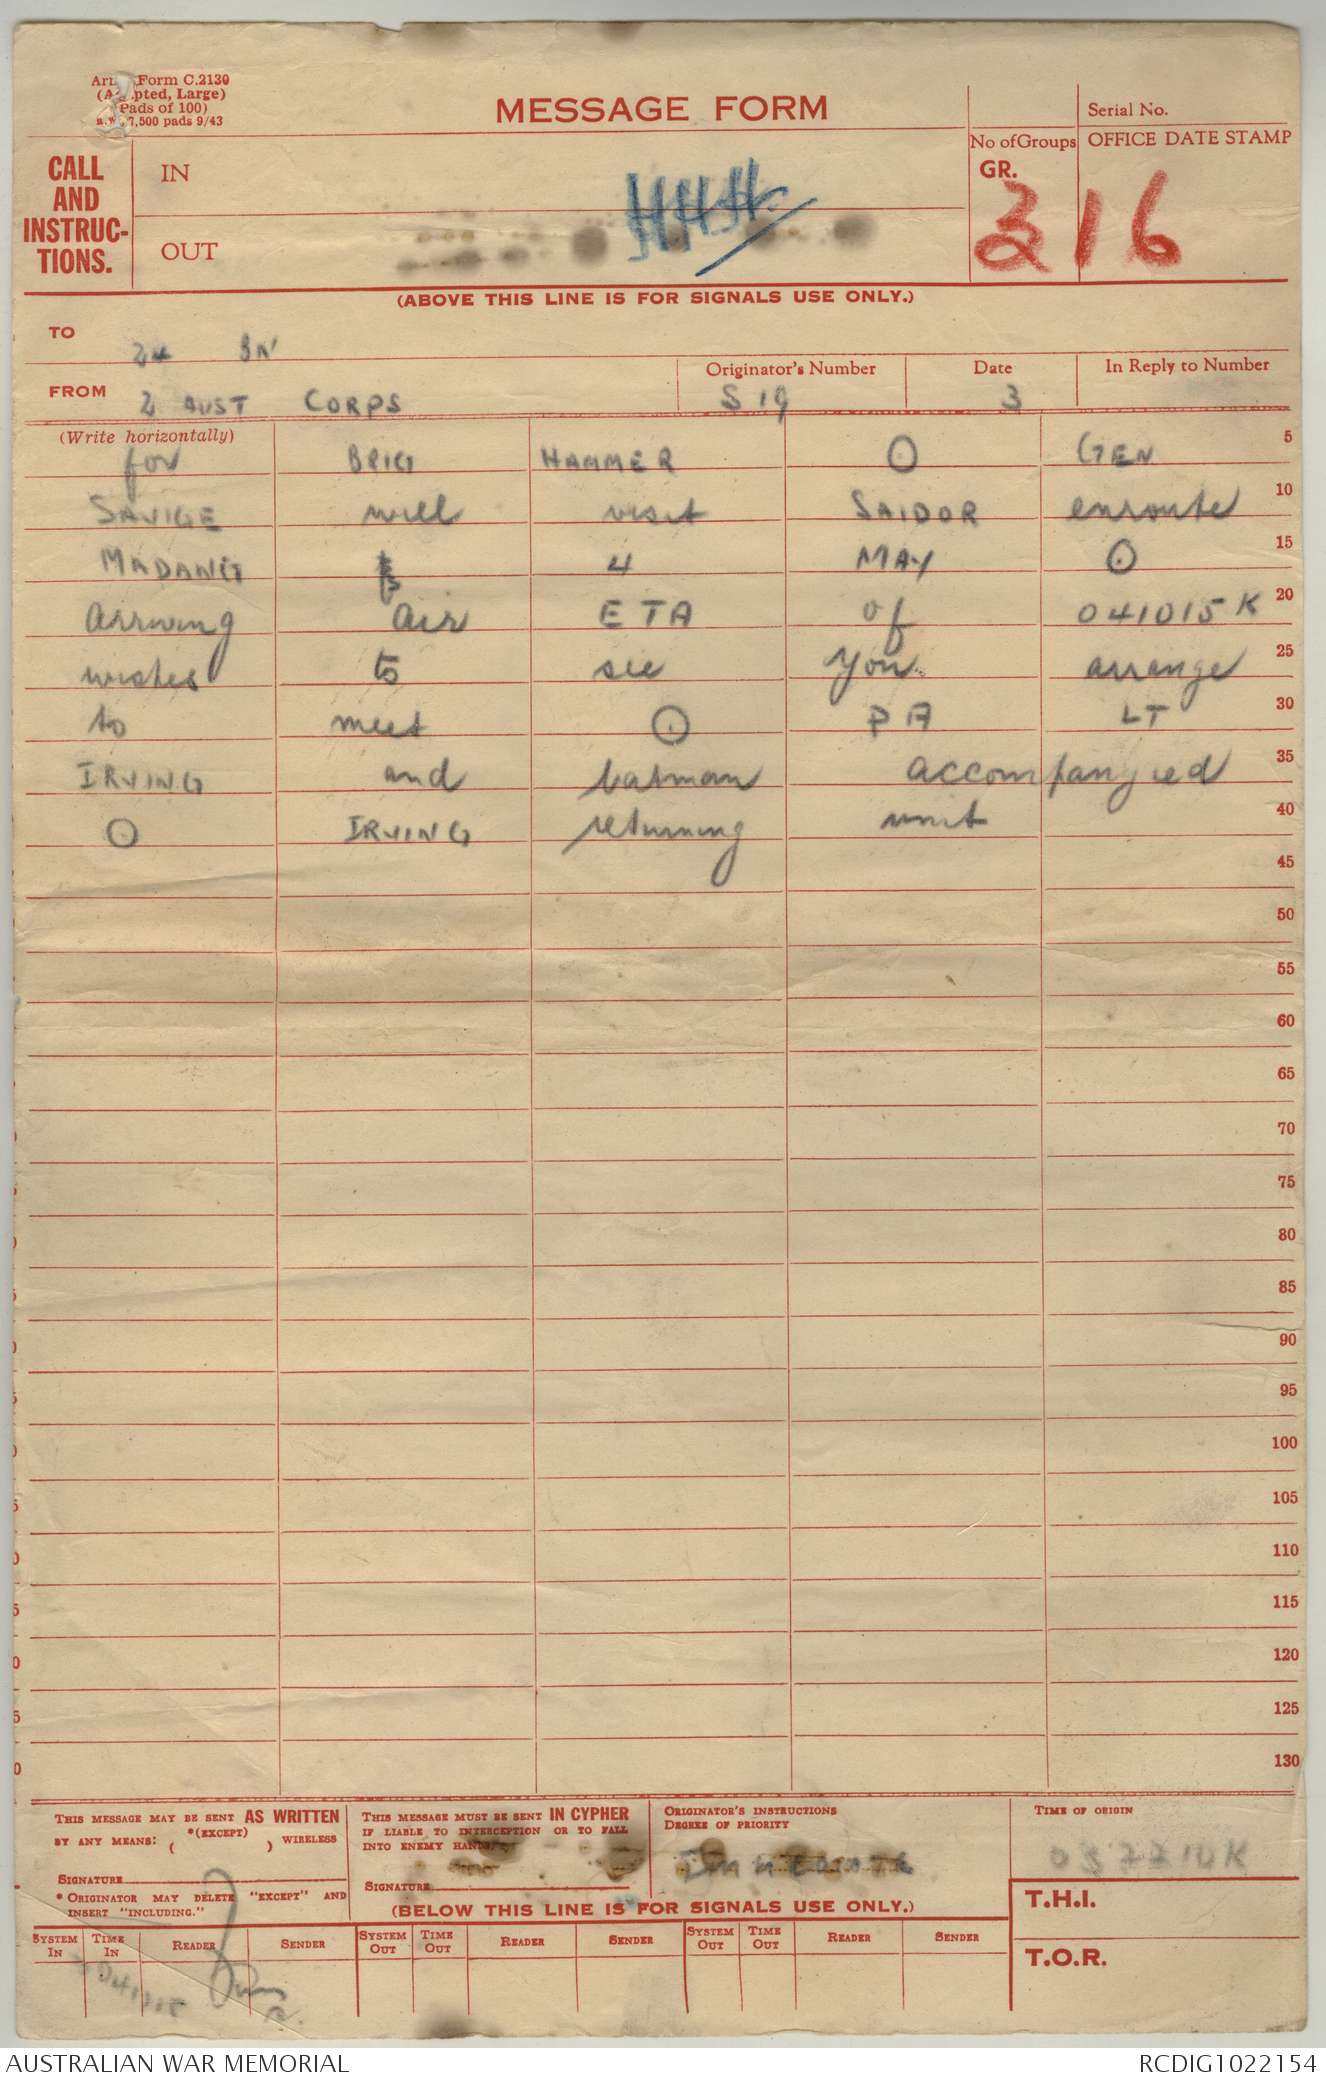 Form C.2130
pted, Large)
Pads of 100)
7,500 pads 9/43
MESSAGE FORM
Serial No.
No of Groups
OFFICE DATE STAMP
CALL
AND
INSTRUC-
TIONS.
IN
OUT
GR.
316
(ABOVE THIS LINE IS FOR SIGNALS USE ONLY.)
TO
FROM 2 AUST CORPS
Originator's Number
S 19
Date
3
In Reply to Number
(Write horizontally)
for BRIG HAMMER GEN 5
SAVIGE will visit SAIDOR enroute 10
MADANG 4 MAY ⊙ 15
arriving air ETA of 041015K 20
wishes to see you arrange 25
to meet ⊙ PA LT 30
IRVING and batman accompanyied 35
⊙ IRVING returning unit 40
45
50
55
60
65
70
75
80
85
90
95
100
105
110
115
120
125
130
THIS MESSAGE MAY BE SENT AS WRITTEN
BY ANY MEANS: ( *(EXCEPT) ) WIRELESS
SIGNATURE
* ORIGINATOR MAY DELETE "EXCEPT" AND
INSERT "INCLUDING."
THIS MESSAGE MUST BE SENT IN CYPHER
IF LIABLE TO INTERCEPTION OR TO FALL
INTO ENEMY HANDS.
SIGNATURE
ORIGINATOR'S INSTRUCTIONS
DEGREE OF PRIORITY
TIME OF ORIGIN
(BELOW THIS LINE IS FOR SIGNALS USE ONLY.)
T.H.I.
T.O.R.
SYSTEM IN TIME IN READER SENDER SYSTEM OUT TIME OUT READER SENDER SYSTEM OUT TIME OUT READER SENDER
AUSTRALIAN WAR MEMORIAL RCDIG1022154